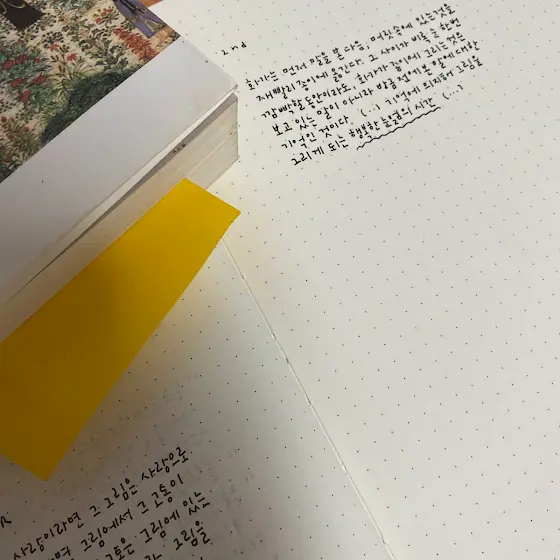 2nd
화가는 먼저 말을 본 다음, 머릿속에 있는것을
재빨리 종이에 옮긴다. 그 사이가 비록 눈 한번
깜빡할 동안이라도, 화가가 종이에 그리는것은
보고 있는 말이 아니라 방금 전에 본 말에 대한
기억인 것이다. (..) 기억에 의지해 그림을
그리게 되는 행복한 눈멂의 시간 (..)
사랑이라면 그 그림은 사랑으로
그림에서 그 고통이
그림에 있는
그림을